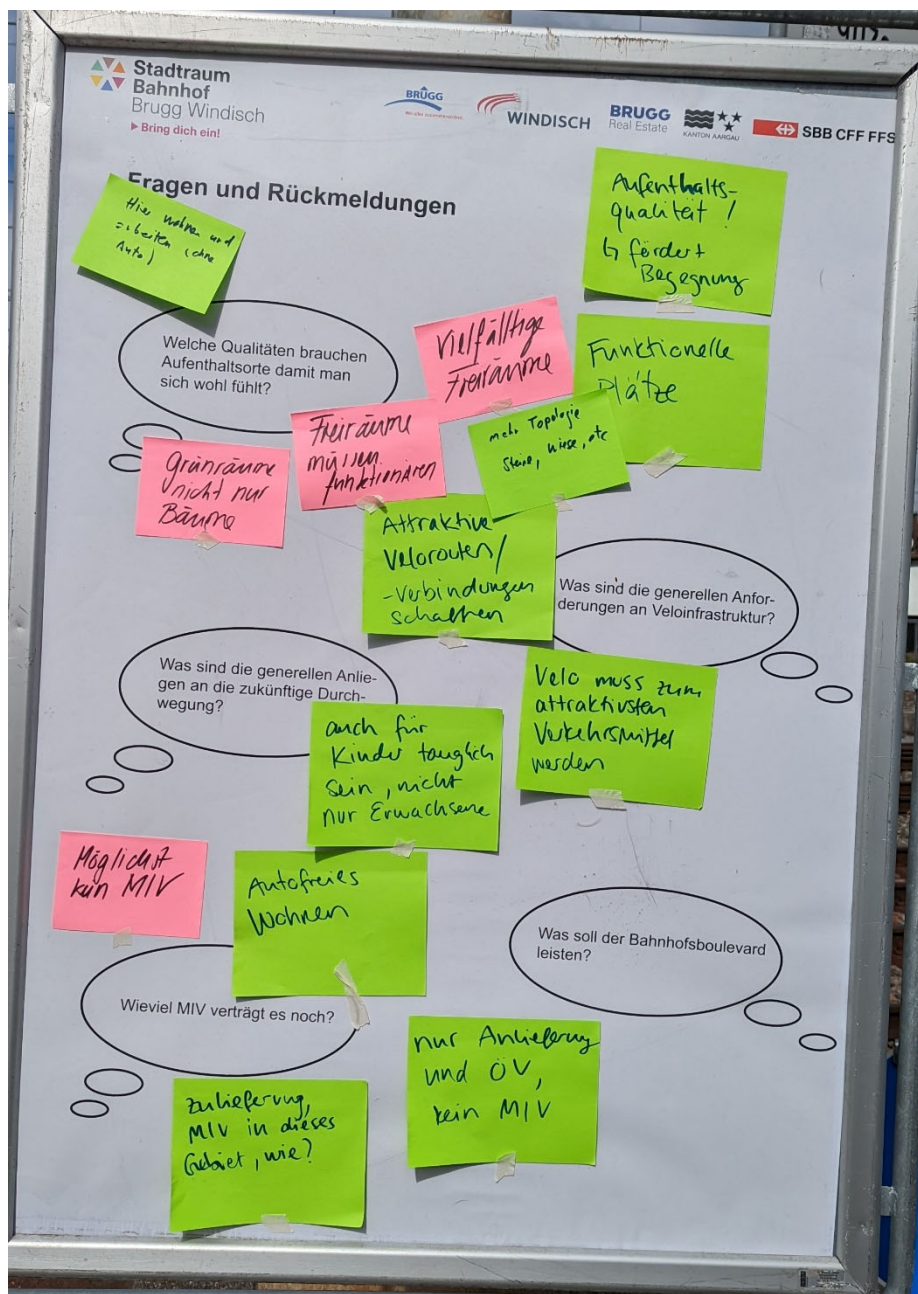 Stadtraum
Bahnhof
Brugg Windisch
Bring dich ein!
BRUGG
WINDISCH
BRUGG
Real Estate
KANTON AARGAU
SBB CFF FFS
Fragen und Rückmeldungen
Hier wohnen und
arbeiten (ohne
Auto)
Aufenthalts-
qualität!
↳ fördert
Begegnung
Welche Qualitäten brauchen
Aufenthaltsorte damit man
sich wohl fühlt?
Vielfälltige
Freiräume
Funktionelle
Plätze
Freiräume
müssen
funktionären
mehr Topologie
Steine, Wiese, etc
Grünräume
nicht nur
Bäume
Attraktive
Velorouten/
-verbindungen
schaffen
Was sind die generellen Anfor-
derungen an Veloinfrastruktur?
Was sind die generellen Anlie-
gen an die zukünftige Durch-
wegung?
Velo muss zum
attraktivsten
Verkehrsmittel
werden
auch für
Kinder tauglich
sein, nicht
nur Erwachsene
Möglichst
kein MIV
Autofreies
Wohnen
Was soll der Bahnhofsboulevard
leisten?
Wieviel MIV verträgt es noch?
nur Anlieferung
und ÖV,
kein MIV
Zulieferung,
MIV in dieses
Gebiet, wie?